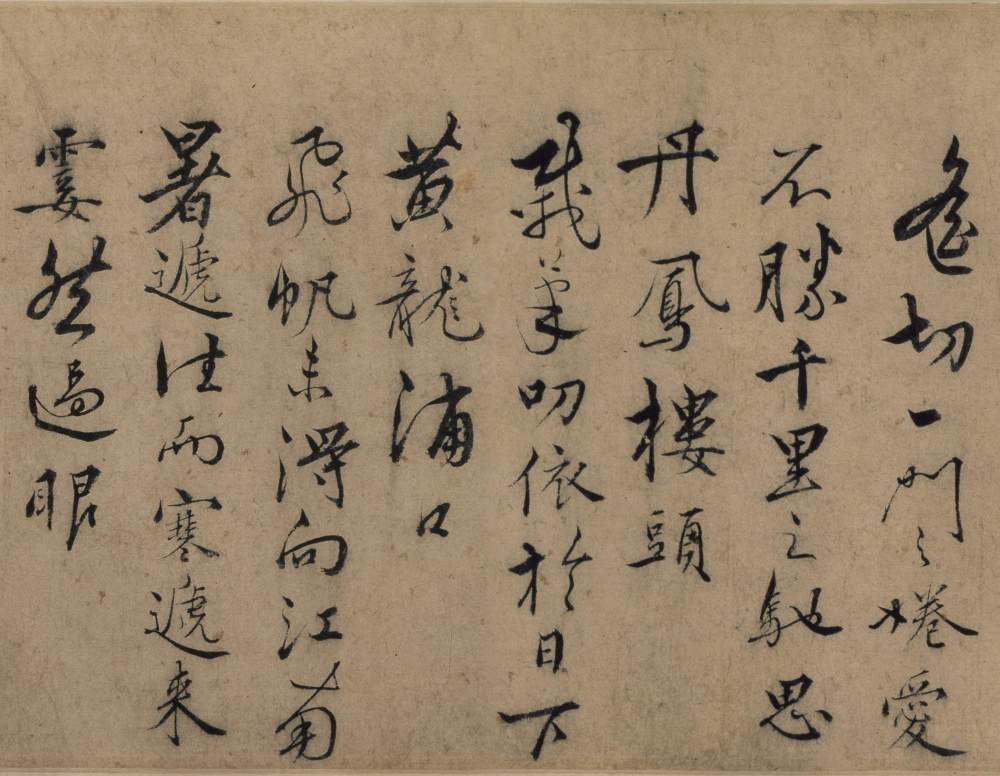 切一門之惓愛
不勝千里之馳思
丹鳳樓頭
載筆叨依於日下
黄龍浦口
飛帆未得向江南
暑遞往而寒遞来
霎然過眼